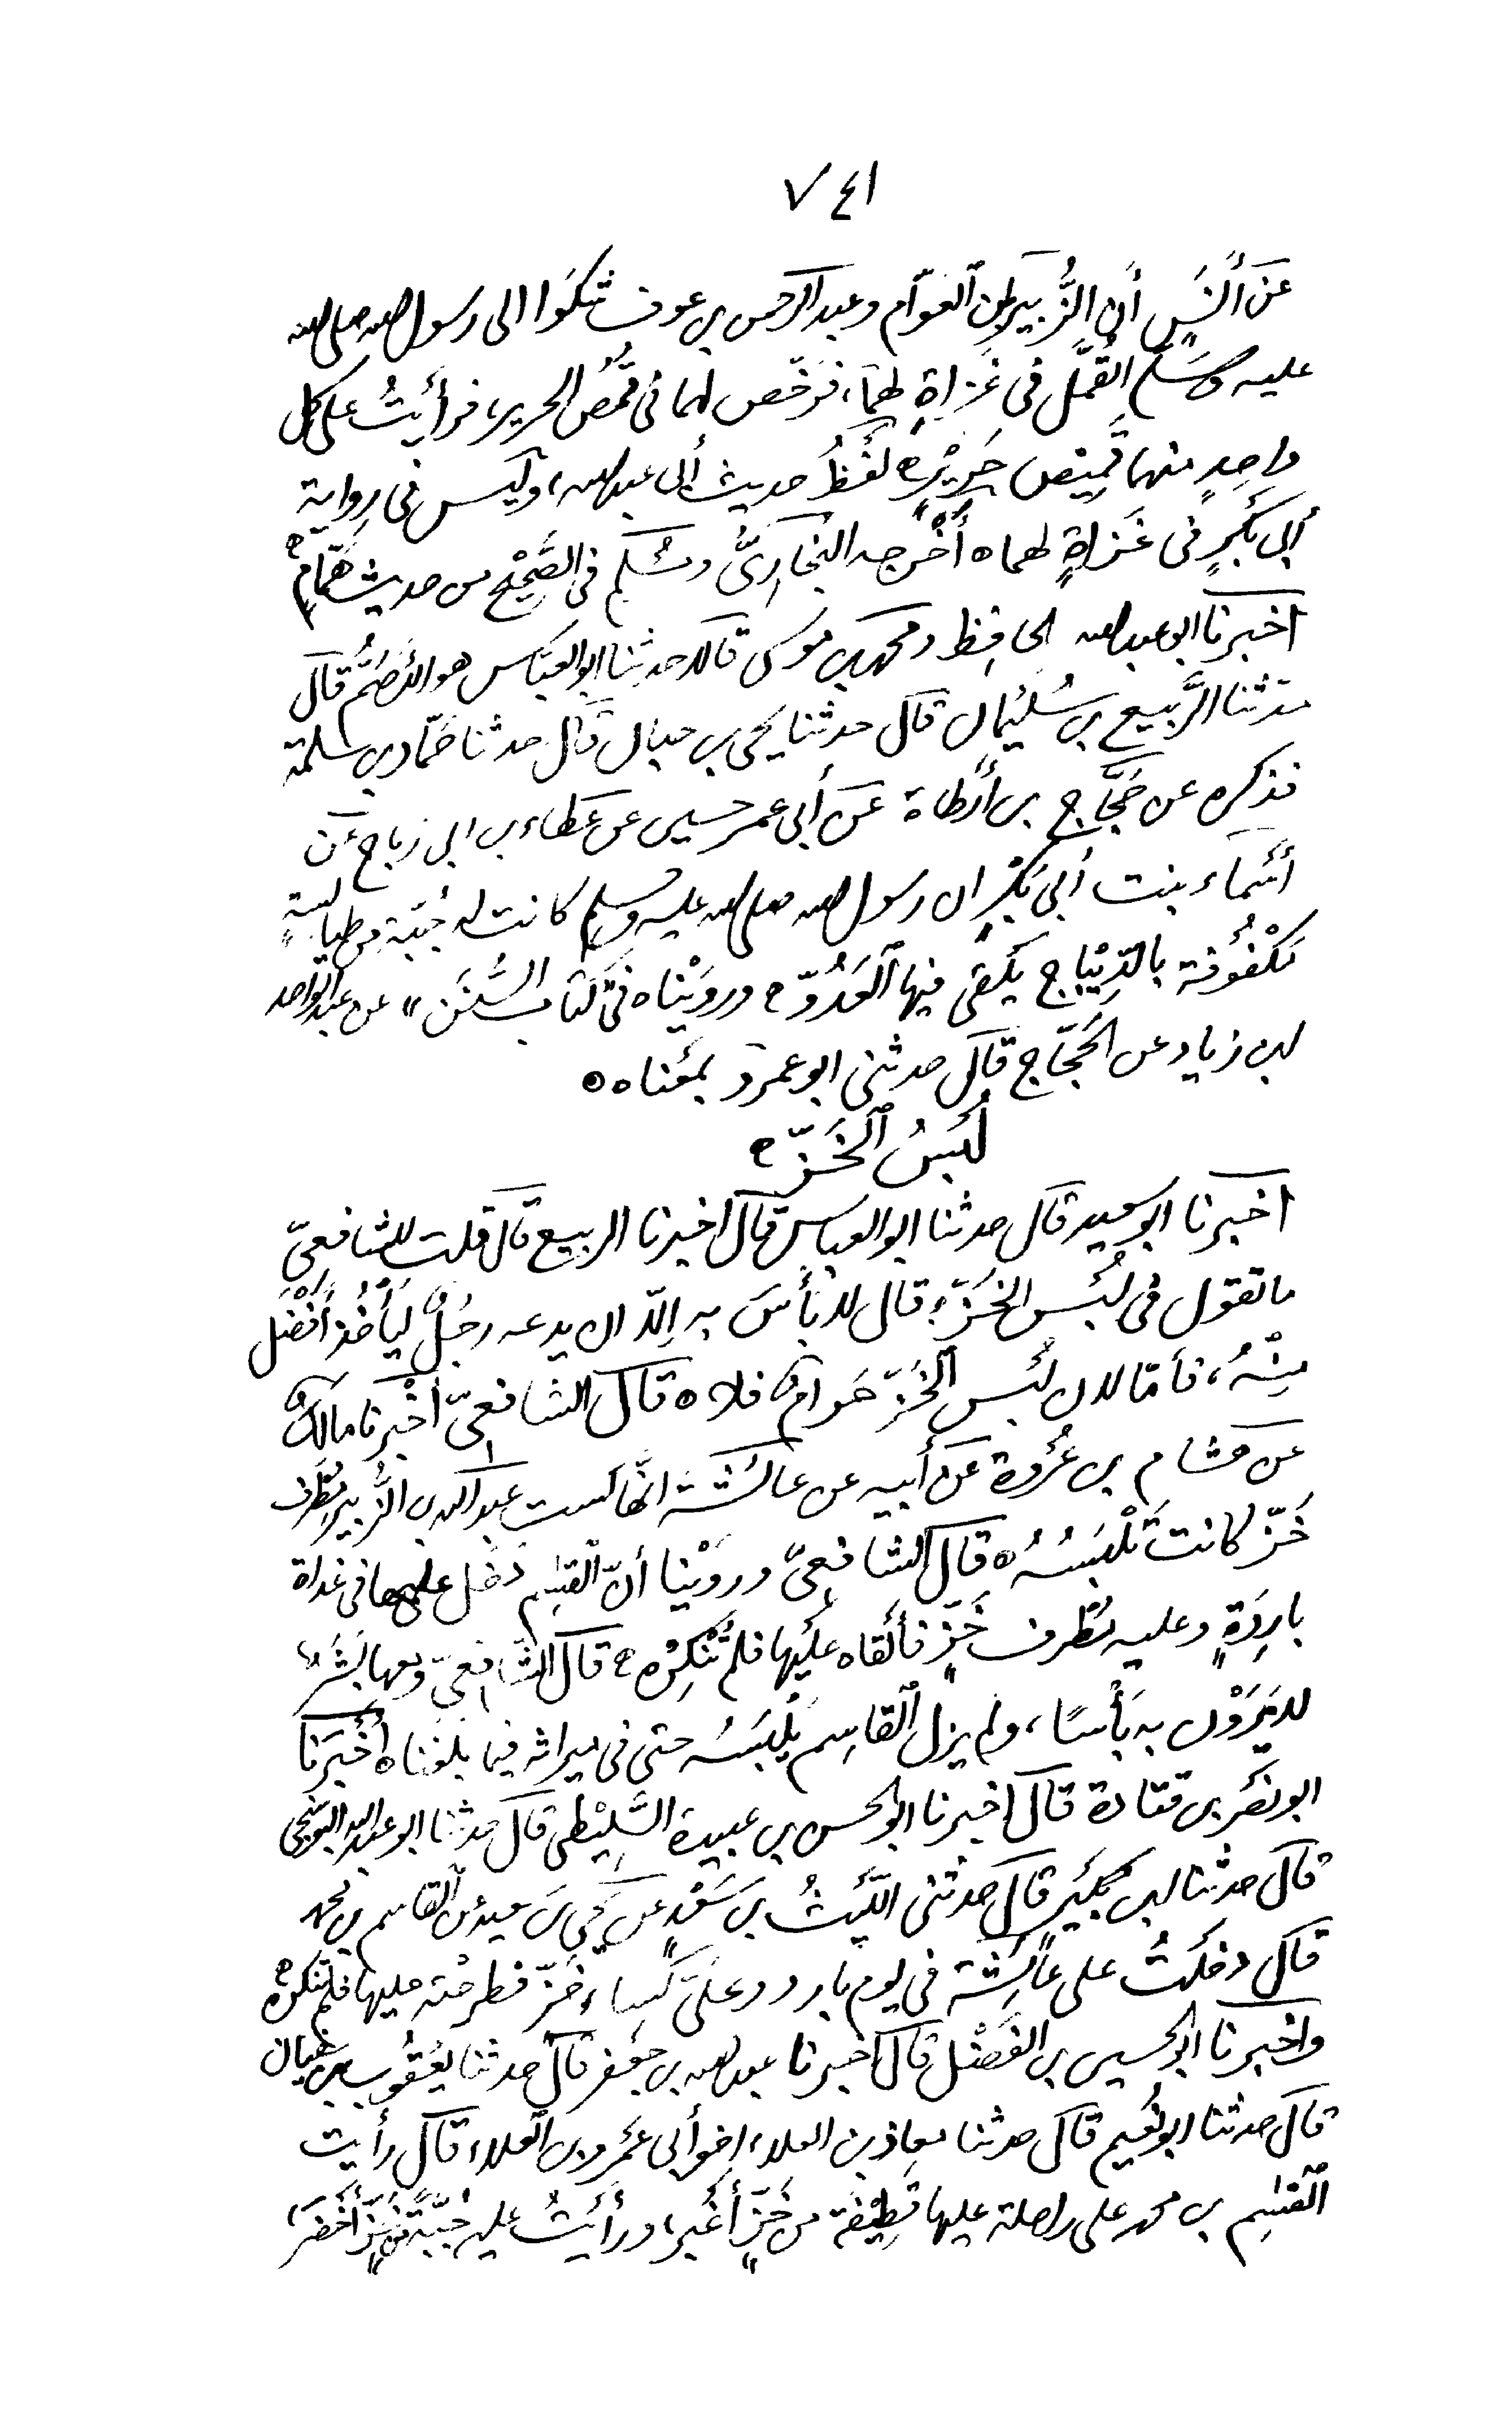 ٧٤١
عَن أَنَسٍ أن الزُّبير بن العوّام وعبد الرحمن بن عوف شكَوا الى رسول الله صلى الله
عليه وسَلّم القُمَّل فى غَزاةٍ لهمَا، فرَخّص لهما فى قُمُص الحرير، فرأَيتُ على كل
واحِدٍ منهما قميص حَرِيْرٍ ه لَفْظُ حديث أبى عبد الله، وليس فى رواية
أبى بكْرٍ فى غَزاةٍ لهما ه أَخْرجه البُخَارِىُّ ومُسْلم فى الصَّحِيْح من حديث هَمّامٍ ه
اخبرنا ابو عبد الله الحافِظ ومحمد بن موسى قالا حدثنا ابو العبَّاس هو الأصَمُّ قال
حدّثنا الرَّبيع بن سُلَيْمان قال حدثنا يحيى بن حسان قال حدثنا حَمّاد بن سلمة
فذكره عن حَجَّاج بن أَرْطاة عَن أبى عمر حسين عن عَطاء بن ابى رباح عَن
أَسْماء بنت أبى بَكْرٍ ان رسول الله صلى الله عليه وسلم كانت له جُبّة من طيالسةٍ
مَكْفُوْفة بالدِّيْبَاج يلقى فيها العَدُوّ ه وروَيْناه فى كتاب السُّنَن، عن عبد الواحد
ابن زياد عن الحَجّاج قال حدثنى ابو عمرو بمعْناه ه
لُبْسُ الخَزّ ه
اخبرنا ابو سعيد قال حدثنا ابو العباس قال اخبرنا الربيع قال قلت للشافعىّ
ما تقول فى لُبْس الخَزّ؟ قال لا بأْسَ به إلّا ان يدعه رجُلٌ ليَأْخُذ أَفْضَل
مِنْهُ، فأمّا لان لُبْس الخَزّ حَرامٌ فلا ه قال الشافعىّ أَخْبرنا مالكٌ
عَن هشام بن عُرْوة عَن أَبيه عن عائشة انّها كست عبد الله بن الزُّبير مُطْرَف
خَزّ كانت تَلْبَسُهُ ه قال الشافعىّ وروَيْنا أنّ القٰسِم دَخَل عليها فى غداة
بارِدَةٍ وعليه مُطْرف خَزٍّ فأَلقاه عليْها فلم تُنْكِرْه ه قال الشّافِعىّ ومعها بَشَرٌ
لا يَرَوْن به بَأْسًا، ولم يزل القاسِم يلْبَسُه حتى فى ميراثه فيما بلغنا ه أَخْبَرنا
ابو نصْر بن قتادة قال اخبرنا ابو الحسن بن عبيدة السَّلِيْطى قال حدثنا ابو عبد الله البوشنجى
قال حدثنا ابن بُكَيْر قال حدثنى اللَّيْثُ بن سَعْدٍ عن يحيى بن سعيد عن القاسم بن محمد
قال دخَلتُ على عائِشة فى يوم بارد وعلىّ كِساء خَزّ فطرحْته عليها فلم تنكره ه
واخبرنا ابو الحسين بن الفَضْل قال اخبرنا عبد الله بن جعفر قال حدثنا يَعْقُوب بن سفيان
قال حدثنا ابو نُعيم قال حدثنا معاذ بن العلاء اخو أبى عَمْرو بن العلاء قال رأيت
القٰسِم بن محمد على راحلة عليها قَطِيْفة من خَزٍّ أَغْبر، ورأَيْتُ عليه جُبّةَ خَزٍّ أَخْضَرَ،